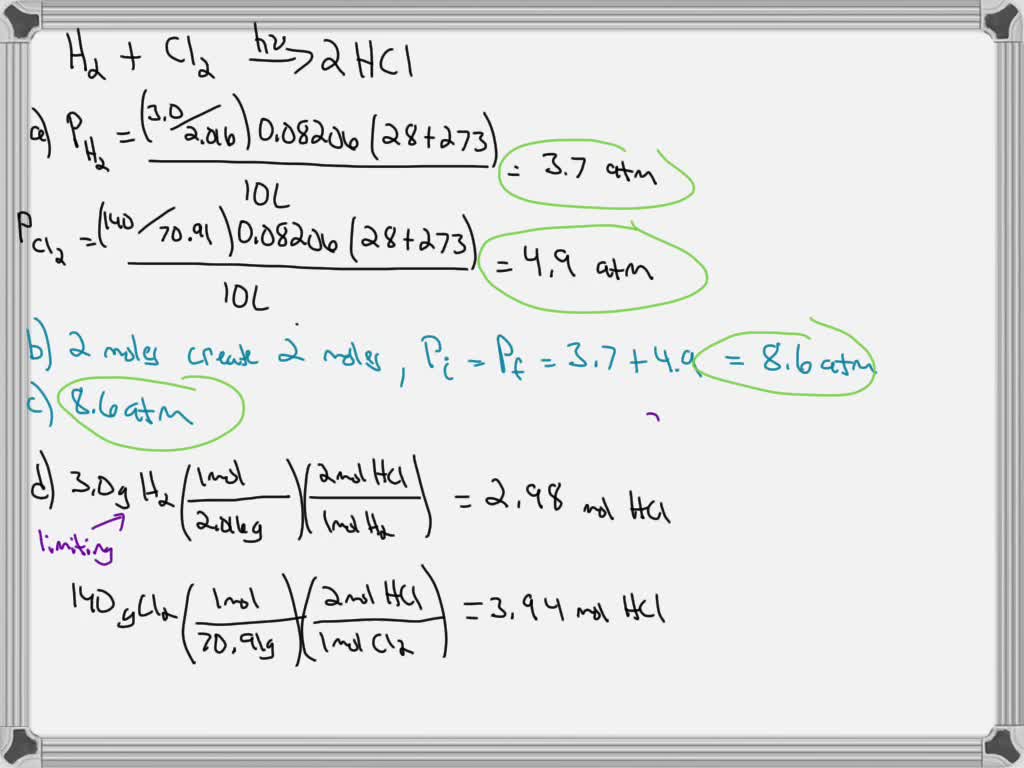 H₂ + Cl₂ —hν→ 2HCl
a) P_H₂ = (3.0/2.016) 0.08206 (28+273) / 10L = 3.7 atm
P_Cl₂ = (140/70.91) 0.08206 (28+273) / 10L = 4.9 atm
b) 2 moles create 2 moles, Pᵢ = P_f = 3.7 + 4.9 = 8.6 atm
c) 8.6 atm
d) 3.0g H₂ (1mol / 2.016g) (2mol HCl / 1mol H₂) = 2.98 mol HCl
limiting
140 gCl₂ (1mol / 70.91g) (2mol HCl / 1mol Cl₂) = 3.94 mol HCl